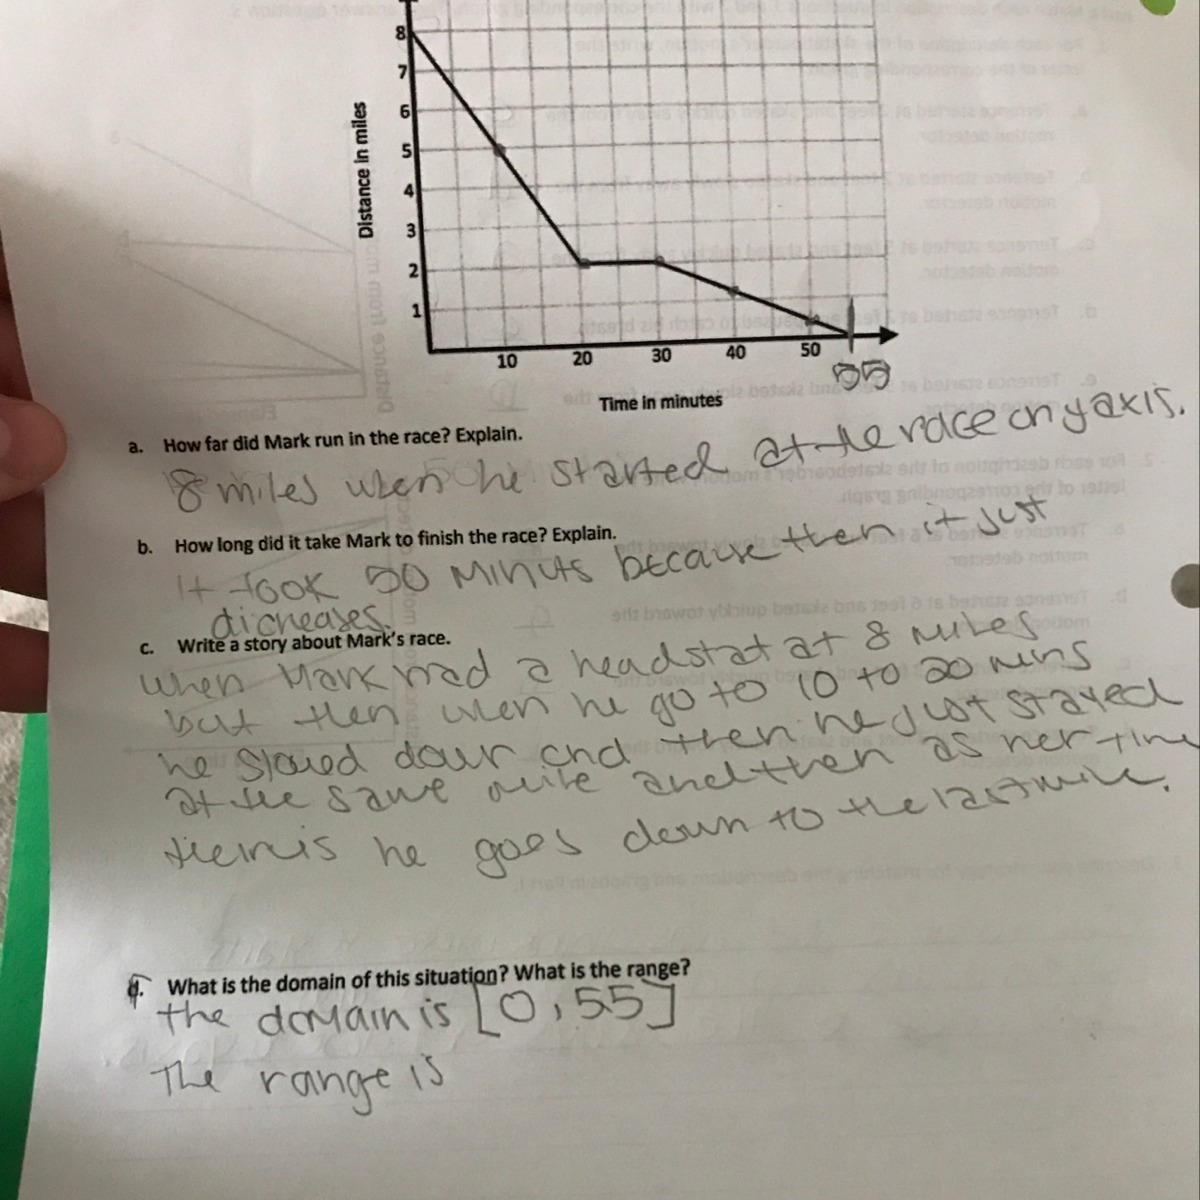 8
7
6
5
4
3
2
1
Distance in miles
10 20 30 40 50
55
Time in minutes
a. How far did Mark run in the race? Explain.
8 miles when he started at the race on y axis.
b. How long did it take Mark to finish the race? Explain.
It took 50 minuts because then it just
dicreases.
c. Write a story about Mark's race.
when Mark had a headstat at 8 miles
but then when he go to 10 to 20 mins
he slowed down and then he just stayed
at the same mile and then as
he goes down to the last mile.
d. What is the domain of this situation? What is the range?
the domain is [0,55]
The range is